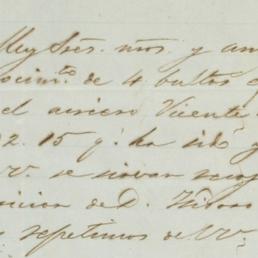 Muy Sres. mos. y am
ocimto. de 4 bultos q
el arriero Vicente
2. 15 qe. ha sido y
VV. se sirvan recoj
sicion de D. Isidoro
s repetimos de VV.